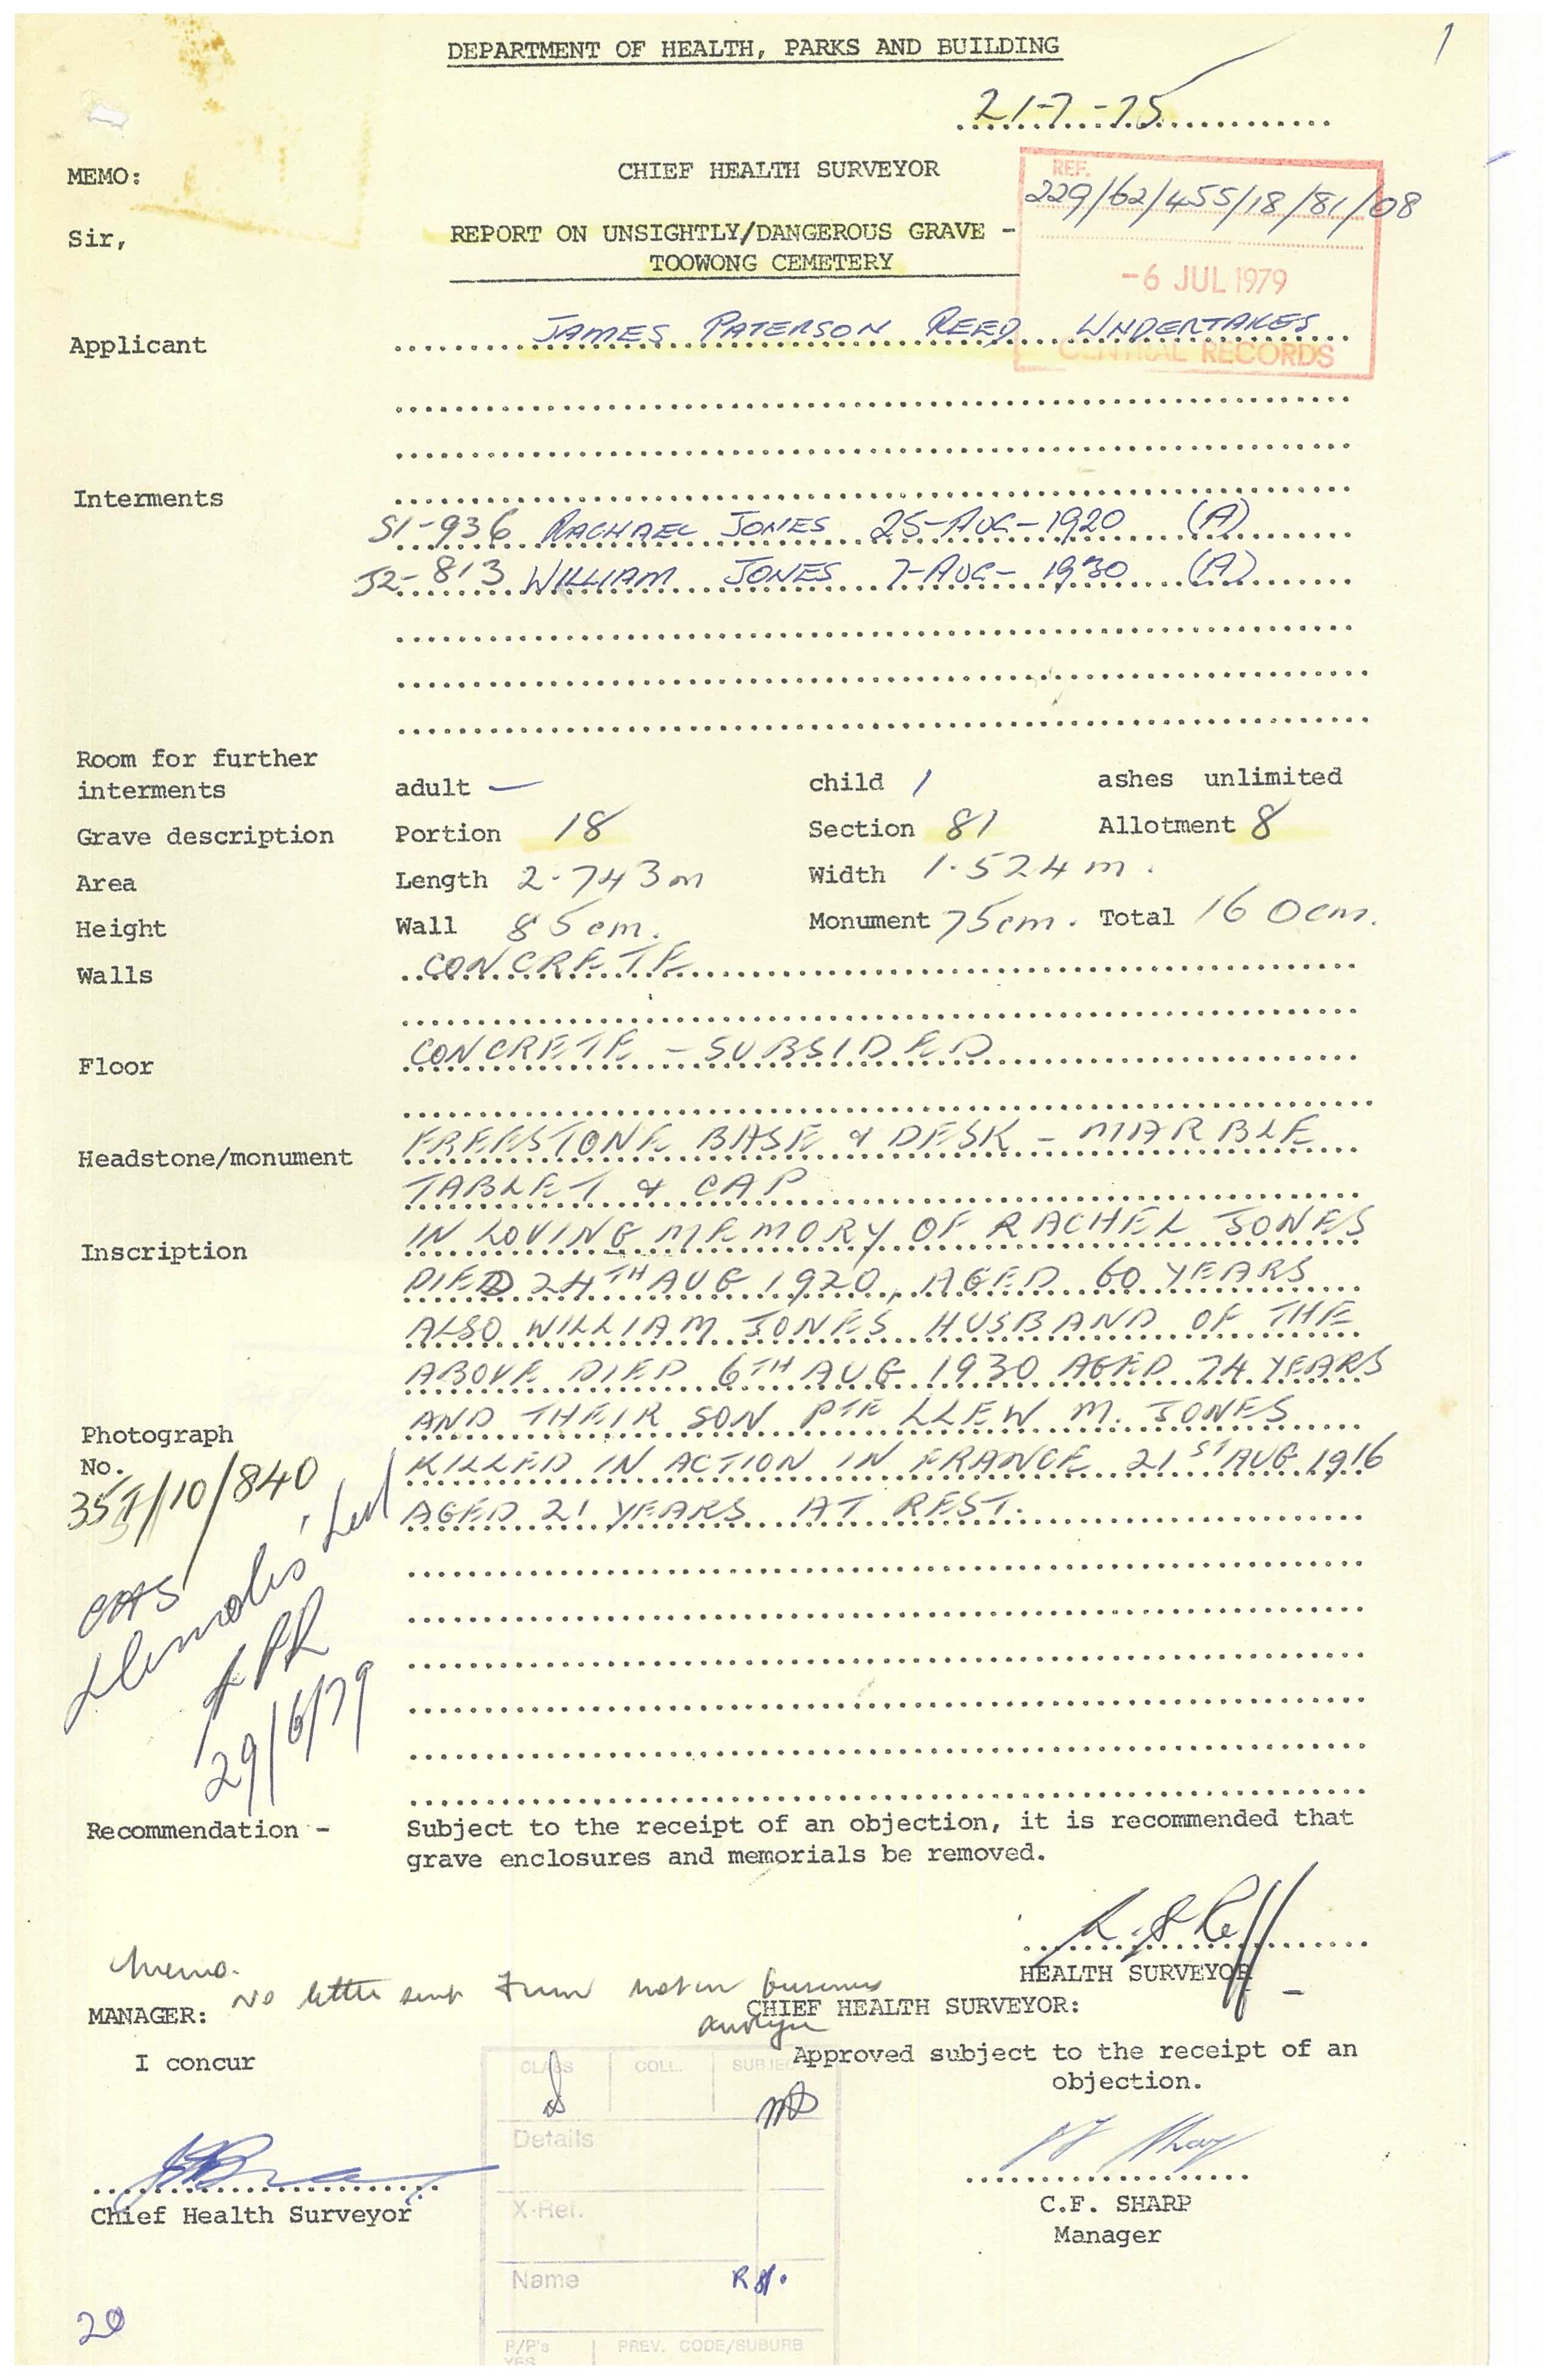 DEPARTMENT OF HEALTH, PARKS AND BUILDING
1
21-7-75
MEMO:
CHIEF HEALTH SURVEYOR
REF.
229/62/455/18/81/08
Sir,
REPORT ON UNSIGHTLY/DANGEROUS GRAVE -
TOOWONG CEMETERY
-6 JUL 1979
CENTRAL RECORDS
Applicant JAMES PATERSON REED UNDERTAKES
Interments
51-936 RACHAEL JONES 25-AUG-1920 (A)
52-813 WILLIAM JONES 7-AUG-1930 (A)
Room for further
interments adult — child 1 ashes unlimited
Grave description Portion 18 Section 81 Allotment 8
Area Length 2.743m Width 1.524m.
Height Wall 85cm. Monument 75cm. Total 160cm.
Walls CONCRETE
Floor CONCRETE - SUBSIDED
Headstone/monument FREESTONE BASE & DESK - MARBLE
TABLET & CAP
Inscription IN LOVING MEMORY OF RACHEL JONES
DIED 24TH AUG 1920, AGED 60 YEARS
ALSO WILLIAM JONES HUSBAND OF THE
ABOVE DIED 6TH AUG 1930 AGED 74 YEARS
AND THEIR SON PTE LLEW M. JONES
KILLED IN ACTION IN FRANCE 21ST AUG 1916
AGED 21 YEARS AT REST.
Photograph
No.
/10/840
29/6/79
Recommendation - Subject to the receipt of an objection, it is recommended that
grave enclosures and memorials be removed.
HEALTH SURVEYOR
Memo.
No letter sent Firm not in business
MANAGER:
CHIEF HEALTH SURVEYOR:
I concur
Approved subject to the receipt of an
objection.
Chief Health Surveyor
C.F. SHARP
Manager
CLASS COLL. SUBJECT
Details
X-Ref.
Name
P/P's PREV. CODE/SUBURB
YES
20